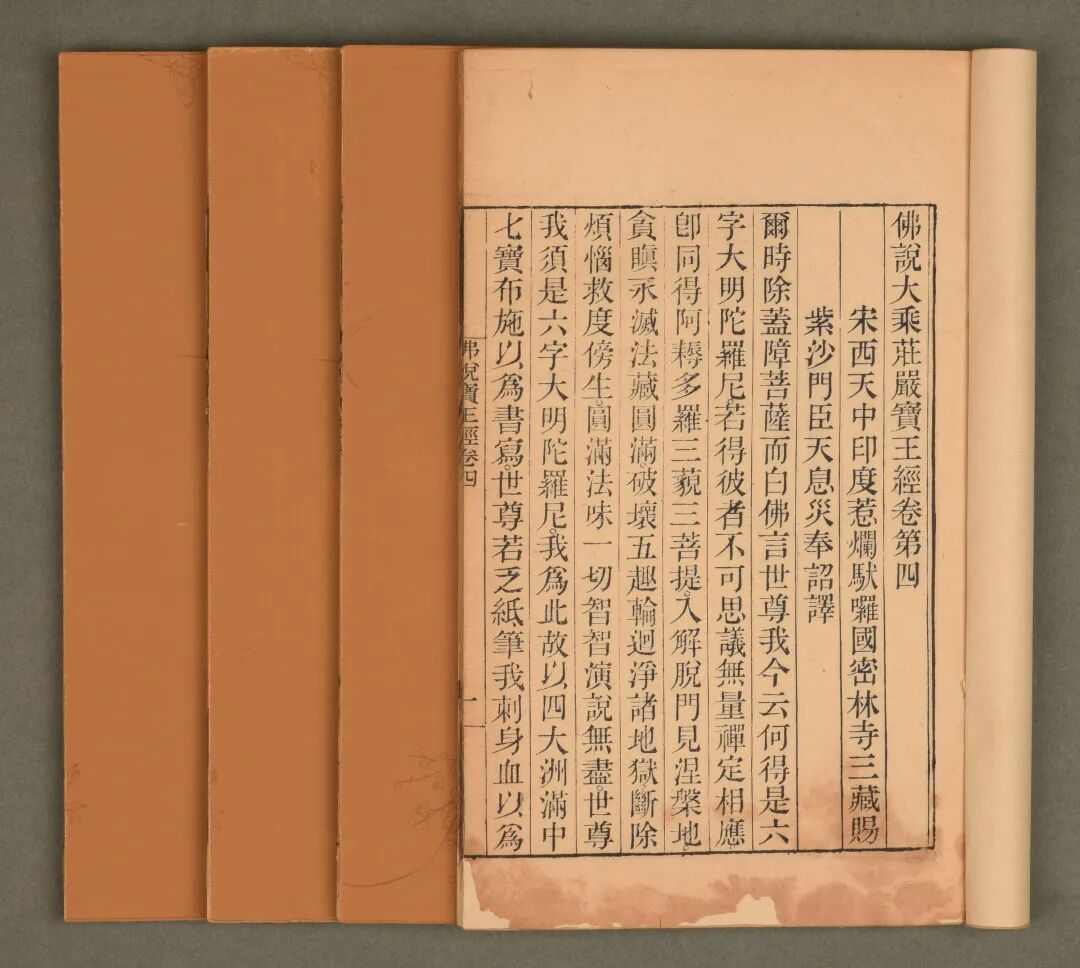 佛說大乘莊嚴寶王經卷第四
宋西天中印度惹爛馱囉國密林寺三藏賜
紫沙門臣天息災奉詔譯
爾時除蓋障菩薩而白佛言世尊我今云何得是六
字大明陀羅尼。若得彼者不可思議無量禪定相應
卽同得阿耨多羅三藐三菩提。入解脫門見涅槃地。
貪瞋永滅法藏圓滿。破壞五趣輪迴淨諸地獄斷除
煩惱救度傍生。圓滿法味一切智智演說無盡。世尊
我須是六字大明陀羅尼。我爲此故以四大洲滿中
七寶布施以爲書寫。世尊若乏紙筆我刺身血以爲
佛說寶王經卷四
一